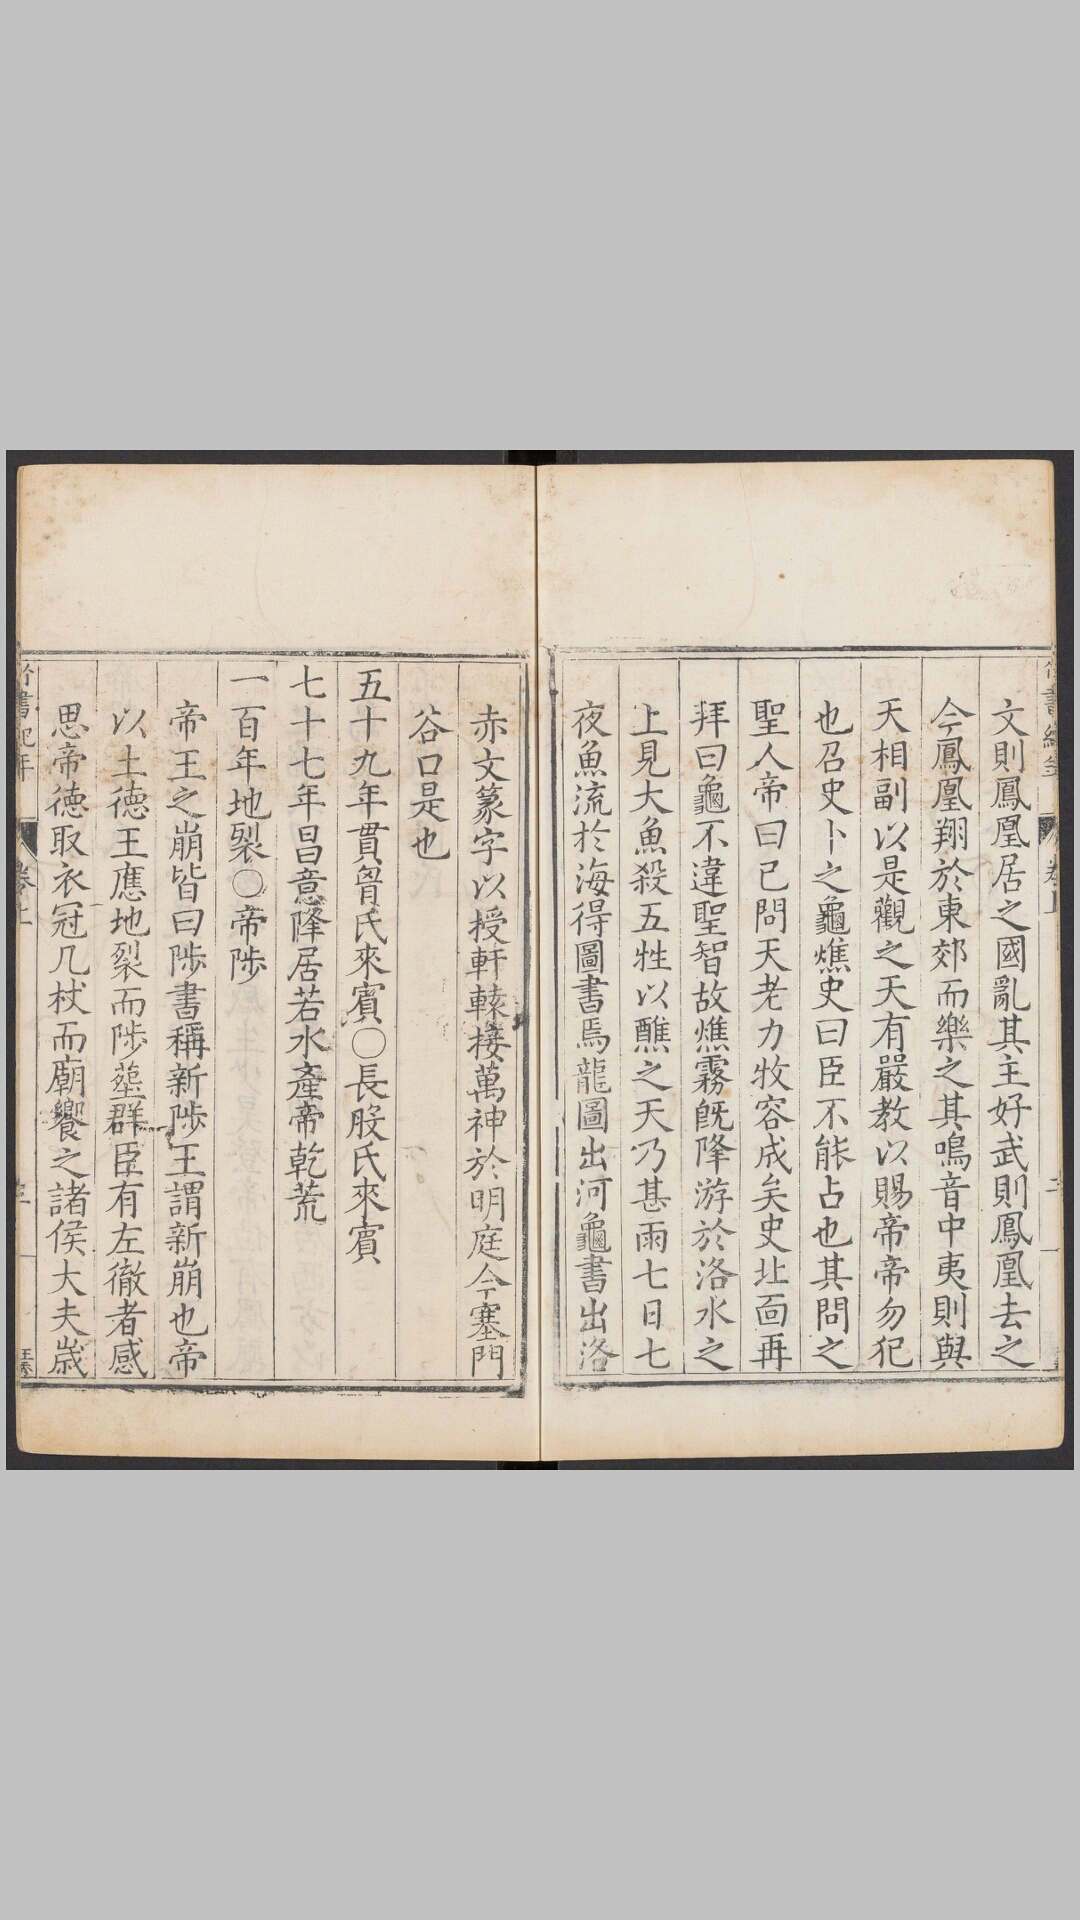 文則鳳凰居之國亂其主好武則鳳凰去之
今鳳凰翔於東郊而樂之其鳴音中夷則與
天相副以是觀之天有嚴教以賜帝帝勿犯
也召史卜之龜燋史曰臣不能占也其問之
聖人帝曰已問天老力牧容成矣史北面再
拜曰龜不違聖智故燋霧既降游於洛水之
上見大魚殺五牲以醮之天乃甚雨七日七
夜魚流於海得圖書焉龍圖出河龜書出洛
赤文篆字以授軒轅接萬神於明庭今塞門
谷口是也
五十九年貫胷氏來賓〇長股氏來賓
七十七年昌意降居若水產帝乾荒
一百年地裂〇帝陟
帝王之崩皆曰陟書稱新陟王謂新崩也帝
以土德王應地裂而陟塟群臣有左徹者感
思帝德取衣冠几杖而廟饗之諸侯大夫歲
竹書紀年
卷上